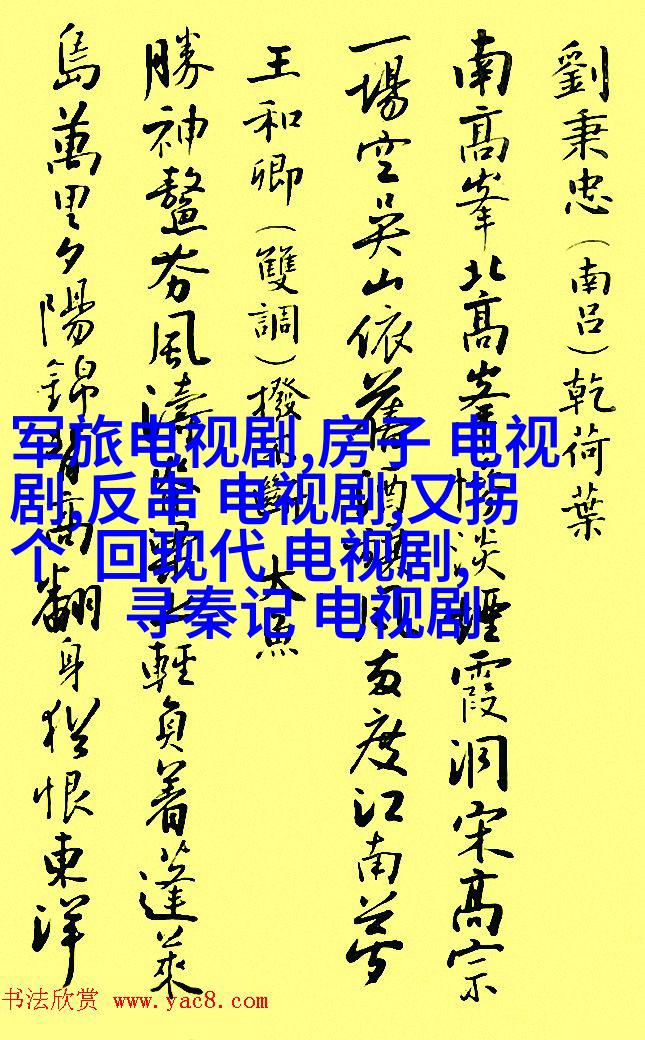 劉秉忠(南呂)乾荷葉
南高峯北高峯惨淡煙霞洞宋高宗
一場空吴山依舊酒旗風两度江南夢
王和卿(雙調)撥不斷 大魚
勝神鰲夯風濤脊梁上輕負着蓬萊
島萬里夕陽錦背高翻身猶恨東洋
军旅电视剧,房子 电视
剧,反串 电视剧,又拐
个 回现代 电视剧,
寻秦记 电视剧
书法欣赏 www.yac8.com